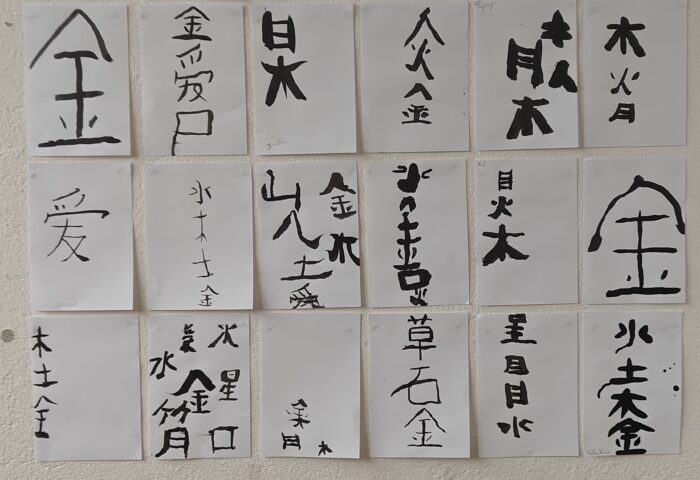 金
金
愛
尸
日
木
人
火
金
木
人
月
木
木
火
月
爱
水
木
土
金
山
金
人
水
土
愛
水
金
火
目
火
木
金
木
土
金
火
水
星
金
竹
月
口
金
月
木
草
石
金
星
日
目
水
水
土
木
金